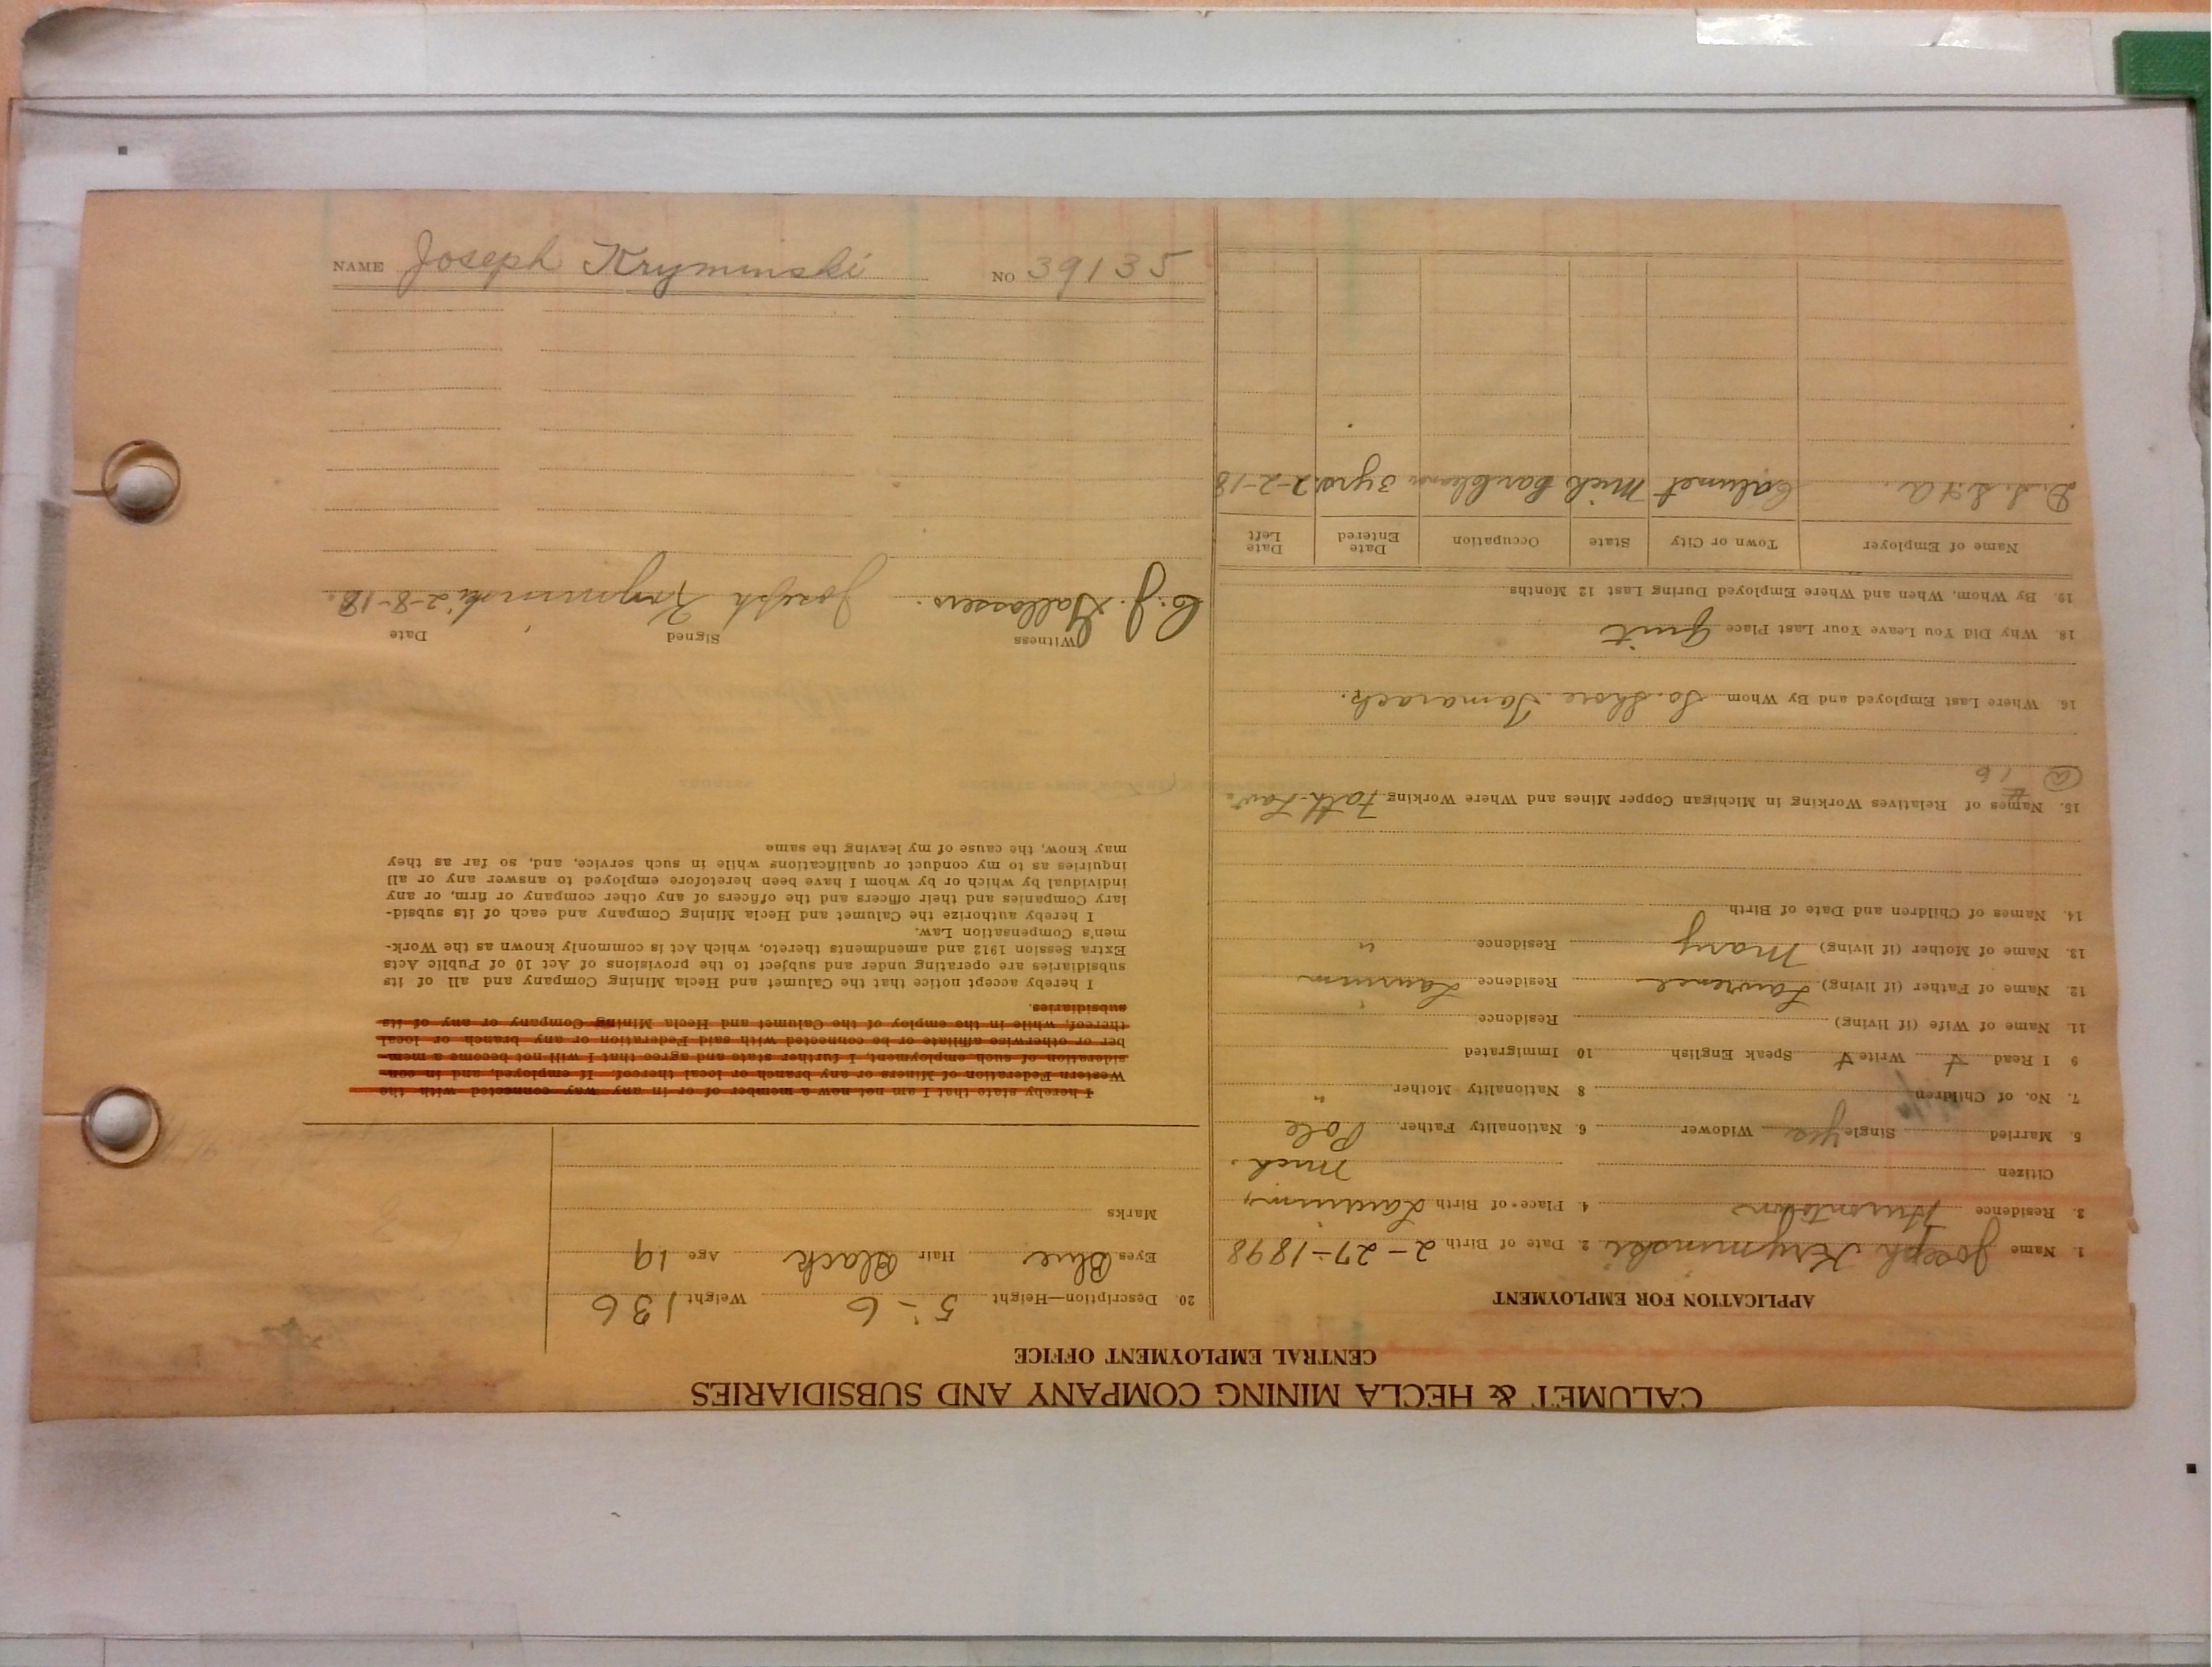 CALUMET & HECLA MINING COMPANY AND SUBSIDIARIES
CENTRAL EMPLOYMENT OFFICE
APPLICATION FOR EMPLOYMENT
1. Name Joseph Kryminski 2. Date of Birth 2-27-1898
3. Residence 4. Place of Birth Laurium,
Citizen Mich.
5. Married Single Yes Widower 6. Nationality Father Pole
7. No. of Children 8 Nationality Mother "
9 I Read Write Speak English 10 Immigrated
11. Name of Wife (if living) Residence
12. Name of Father (if living) Lawrence Residence Laurium
13. Name of Mother (if living) Mary Residence "
14. Names of Children and Date of Birth
15. Names of Relatives Working in Michigan Copper Mines and Where Working Fath-Law.
16. Where Last Employed and By Whom So. Shore Tamarack.
18. Why Did You Leave Your Last Place Quit
19. By Whom, When and Where Employed During Last 12 Months
Name of Employer Town or City State Occupation Date Entered Date Left
D. S. S. & A. Calumet Mich 3 yrs. 2-2-18
20. Description—Height 5-6 Weight 136
Eyes Blue Hair Black Age 19
Marks
I hereby state that I am not now a member of or in any way connected with the
Western Federation of Miners or any branch or local thereof. If employed, and in con-
sideration of such employment, I further state and agree that I will not become a mem-
ber or otherwise affiliate or be connected with said Federation or any branch or local
thereof, while in the employ of the Calumet and Hecla Mining Company or any of its
subsidiaries.
I hereby accept notice that the Calumet and Hecla Mining Company and all of its
subsidiaries are operating under and subject to the provisions of Act 10 of Public Acts
Extra Session 1912 and amendments thereto, which Act is commonly known as the Work-
men's Compensation Law.
I hereby authorize the Calumet and Hecla Mining Company and each of its subsid-
iary Companies and their officers and the officers of any other company or firm, or any
individual by which or by whom I have been heretofore employed to answer any or all
inquiries as to my conduct or qualifications while in such service, and, so far as they
may know, the cause of my leaving the same
Witness Signed Date
C. J. Joseph Kryminski 2-8-18.
NAME Joseph Kryminski NO 39135